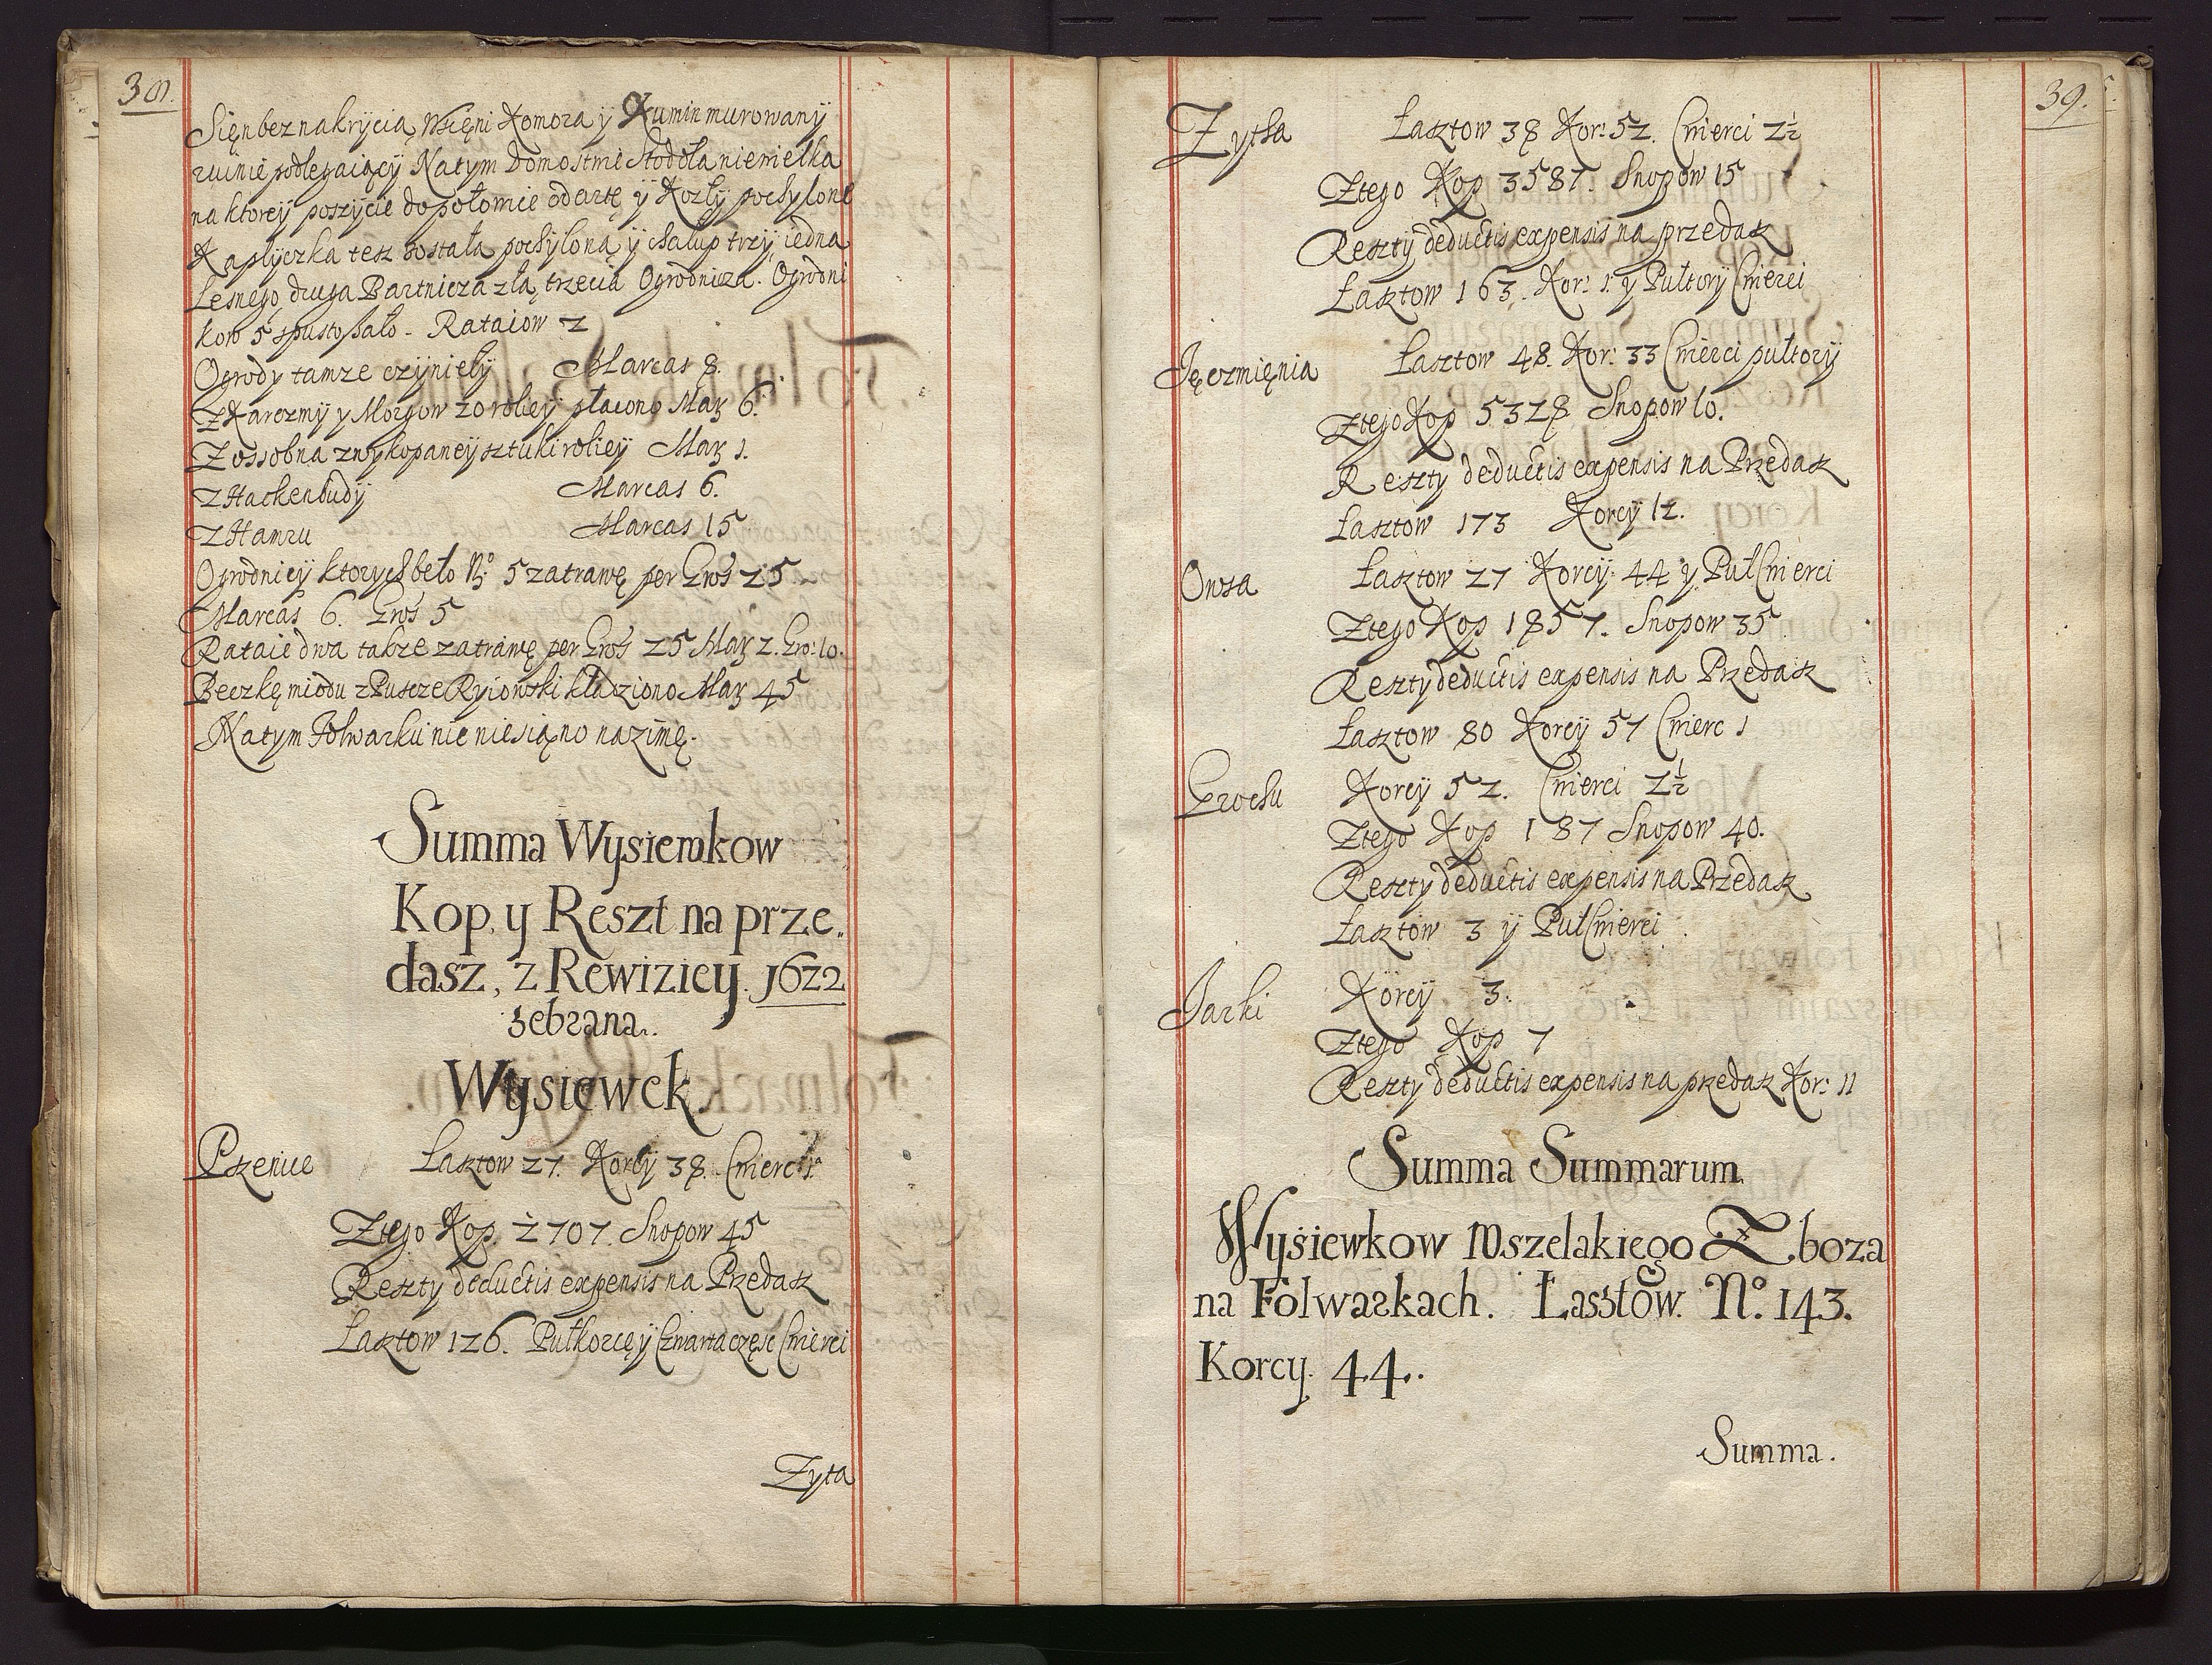 38.
Sięn bez nakrycia, Wsięni Komora y Kumin murowanÿ
ruinie podlegaiącÿ Natym Domostwie Stodoła niewielka
na ktoreÿ poszÿcie dopołowie odarte ÿ Kozłÿ pochylone
Kaplyczka tesz została pochyloną ÿ chalup trzÿ iedna
Lesnego druga Bartnicza zła, trzecia Ogrodnicza. Ogrodni
kow 5 spustoszało - Rataiow 2
Ogrody tamze czÿniełÿ Marcas 8.
Z Karczmÿ y Morgow 20 roliеÿ płacono Mar 6.
Zossobna z wykopaneÿ sztuki rolieÿ Mar 1.
Z Hackenbudÿ Marcas 6.
Z Hamru Marcas 15
Ogrodnicÿ ktorych beło No 5 zatrawę per Gros 25
Marcas 6. Gros 5
Rataie dwa takze zatrawę per Gros 25 Mar 2. Gro: 10.
Beczkę miodu z Puscze Ryiowski kładziono Mar 45
Natym Folwarku nic niesiąno nazimę.
Summa Wysiewkow
Kop, y Reszt na prze„
dasz, z Rewizicy. 1622
zebrana.
Wysiewek.
Pszenice Łasztow 27. Korcÿ 38. Cwierc 1.
Ztego Kop. 2707. Snopow 45
Reszty deductis expensis na Przedasz
Łasztow 126. Pułkorcę ÿ Czwarta częsc Cwierci
Zyta
39.
Zytha Łasztow 38 Kor: 52. Cwierci 2½
Ztego Kop 3587. Snopow 15
Reszty deductis expensis na przedasz
Łasztow 163. Kor: 1. y Pułtory Cwierci
Jęczmięnia Łasztow 48. Kor: 33 Cwierci pułtorÿ
Ztego Kop 5328 Snopow 10.
Reszty deductis expensis na Przedasz
Łasztow 173 Korcÿ 12.
Owsa Łasztow 27 Korcÿ 44 y PułCwierci
Ztego Kop 1857. Snopow 35
Reszty deductis expensis na Przedasz
Łasztow 80 Korcÿ 57 Cwierc 1
Grochu Korcÿ 52. Cwierci 2½
Ztego Kop 187 Snopow 40.
Reszty deductis expensis na Przedasz
Łasztow 3 ÿ PułCwierci
Jarki Korcÿ 3.
Ztego Kop 7
Reszty deductis expensis na przedasz Kor: 11
Summa Summarum.
Wysiewkow wszelakiego Zboza
na Folwarkach. Łasztow. No. 143.
Korcy. 44.
Summa.